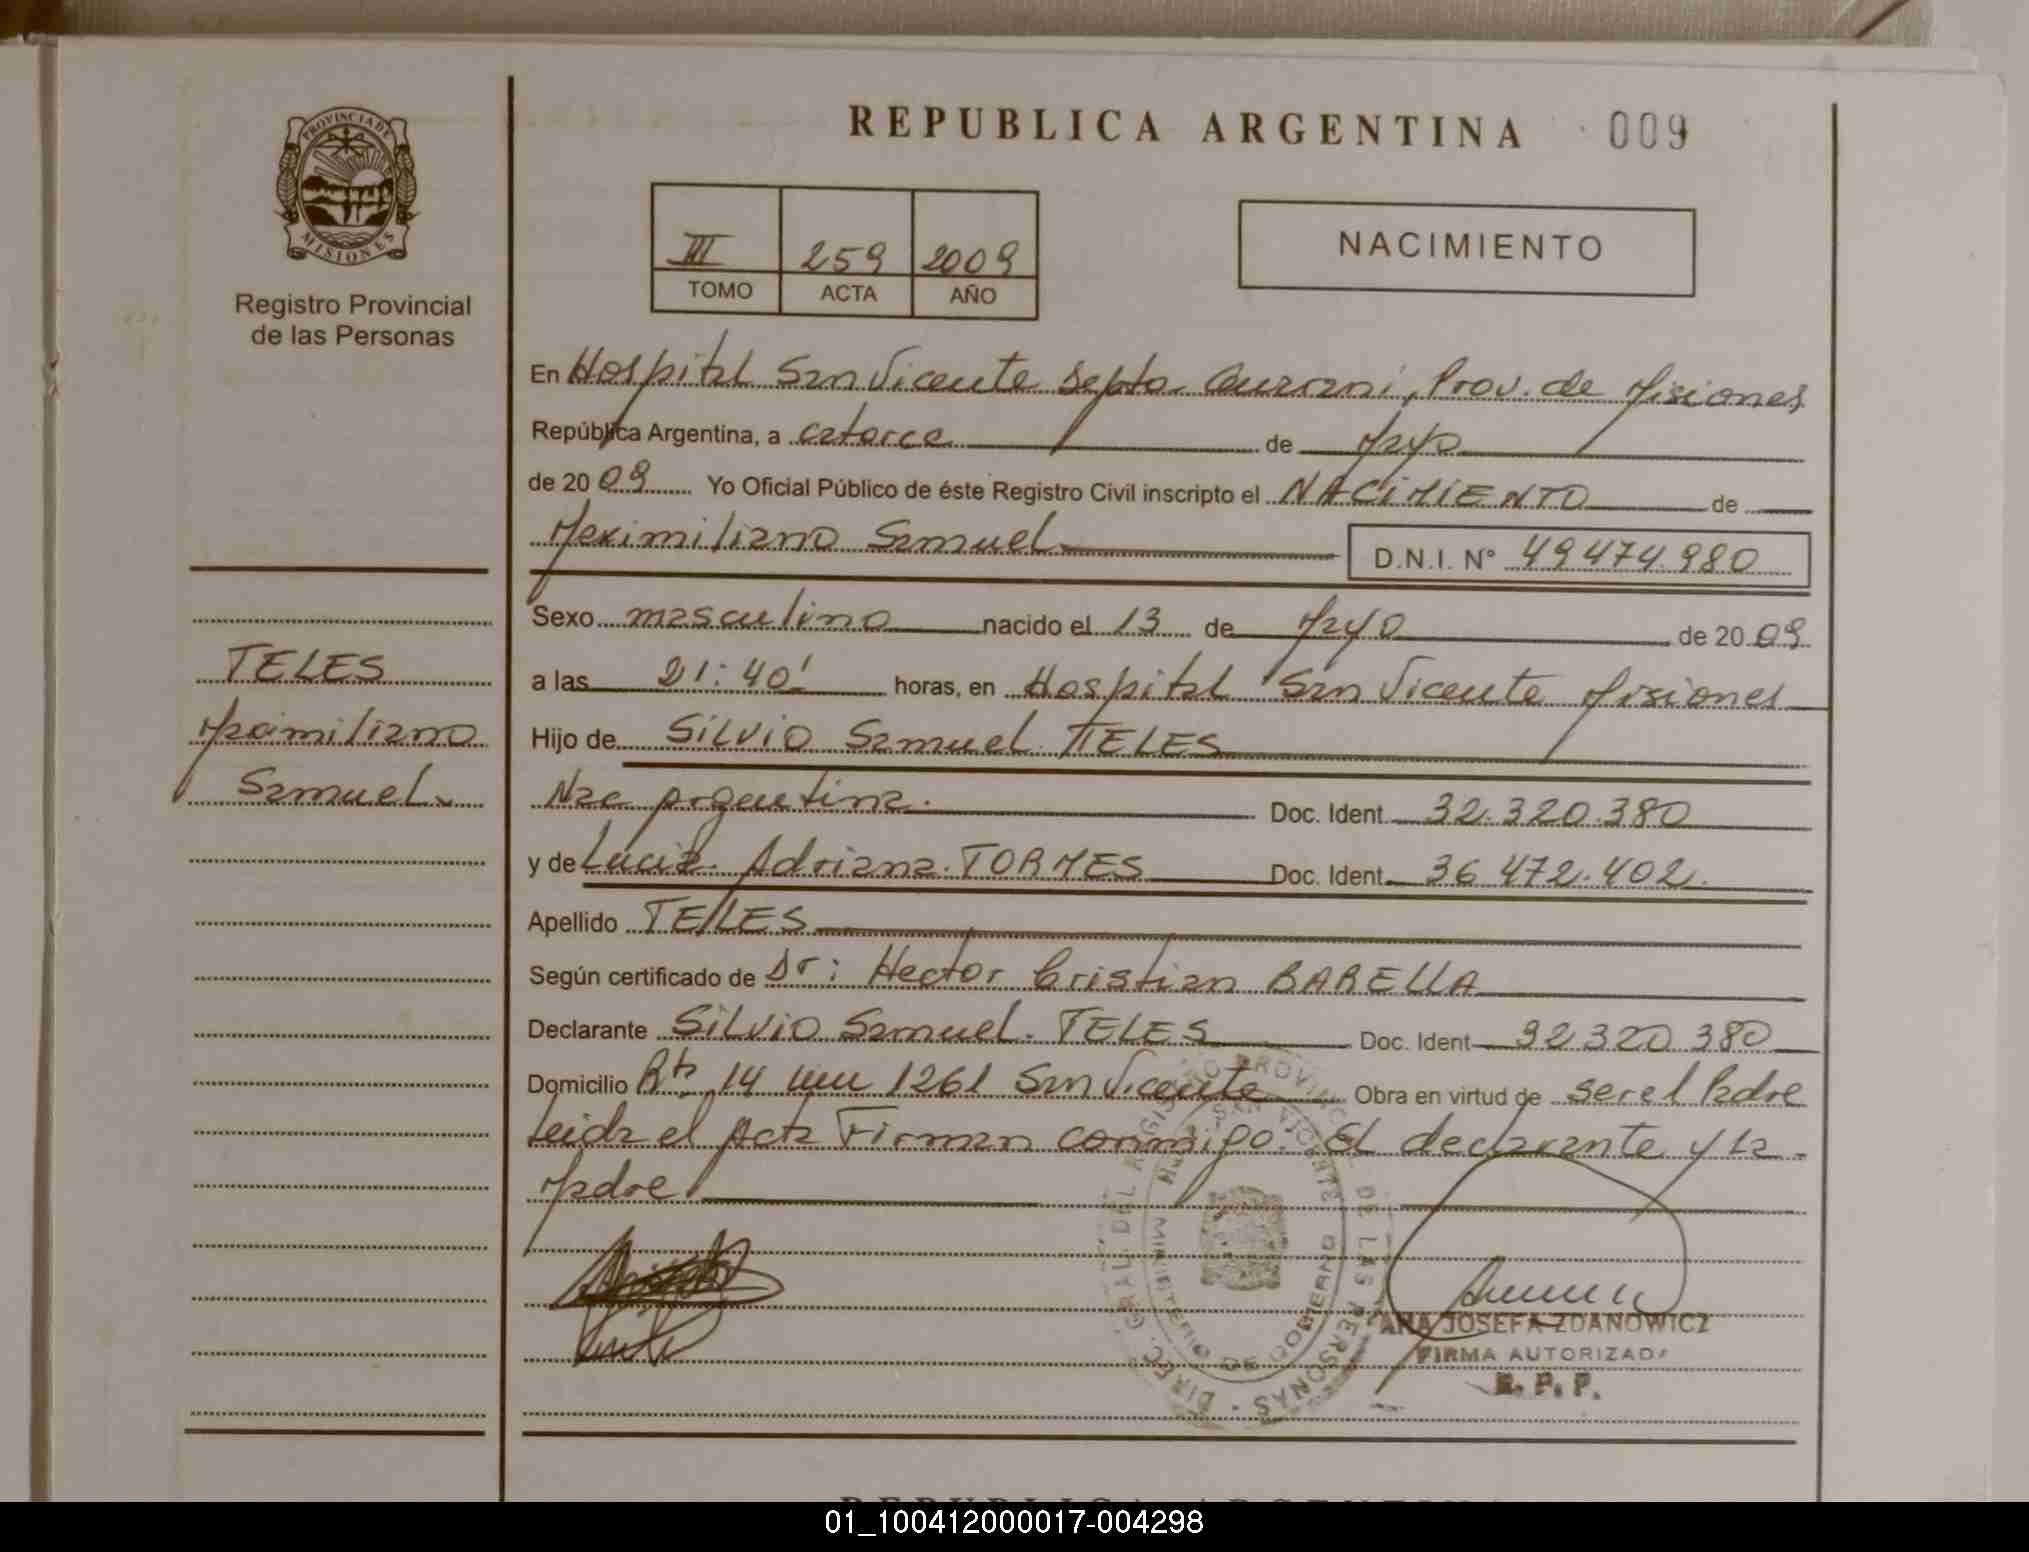 REPUBLICA ARGENTINA 009
PROVINCIA DE
MISIONES
Registro Provincial
de las Personas
III 259 2009
TOMO ACTA AÑO
NACIMIENTO
En Hospital San Vicente Depto. Guarani, Prov. de Misiones
República Argentina, a catorce de Mayo
de 2009 Yo Oficial Público de éste Registro Civil inscripto el NACIMIENTO de
Maximiliano Samuel
D.N.I. N° 49474.980
Sexo masculino nacido el 13 de Mayo de 2009
a las 21:40' horas, en Hospital San Vicente Misiones
Hijo de Silvio Samuel TELES
Nac Argentina. Doc. Ident 32.320.380
y de Lucia Adriana TORMES Doc. Ident 36 472.402.
Apellido TELES
Según certificado de Dr: Hector Cristian BARELLA
Declarante Silvio Samuel. TELES Doc. Ident 32320 380
Domicilio Rta 14 km 1261 San Vicente Obra en virtud de ser el Padre
Leida el Acta Firman conmigo. El declarante y La
Madre
TELES
Maximiliano
Samuel.
DIREC. GRAL. DEL REGISTRO PROVINCIAL DE LAS PERSONAS
MINISTERIO DE GOBIERNO
SAN VICENTE
ANA JOSEFA ZDANOWICZ
FIRMA AUTORIZADA
R. P. P.
REPUBLICA ARGENTINA
01_100412000017-004298